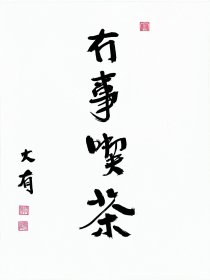 冇事喫茶
大有